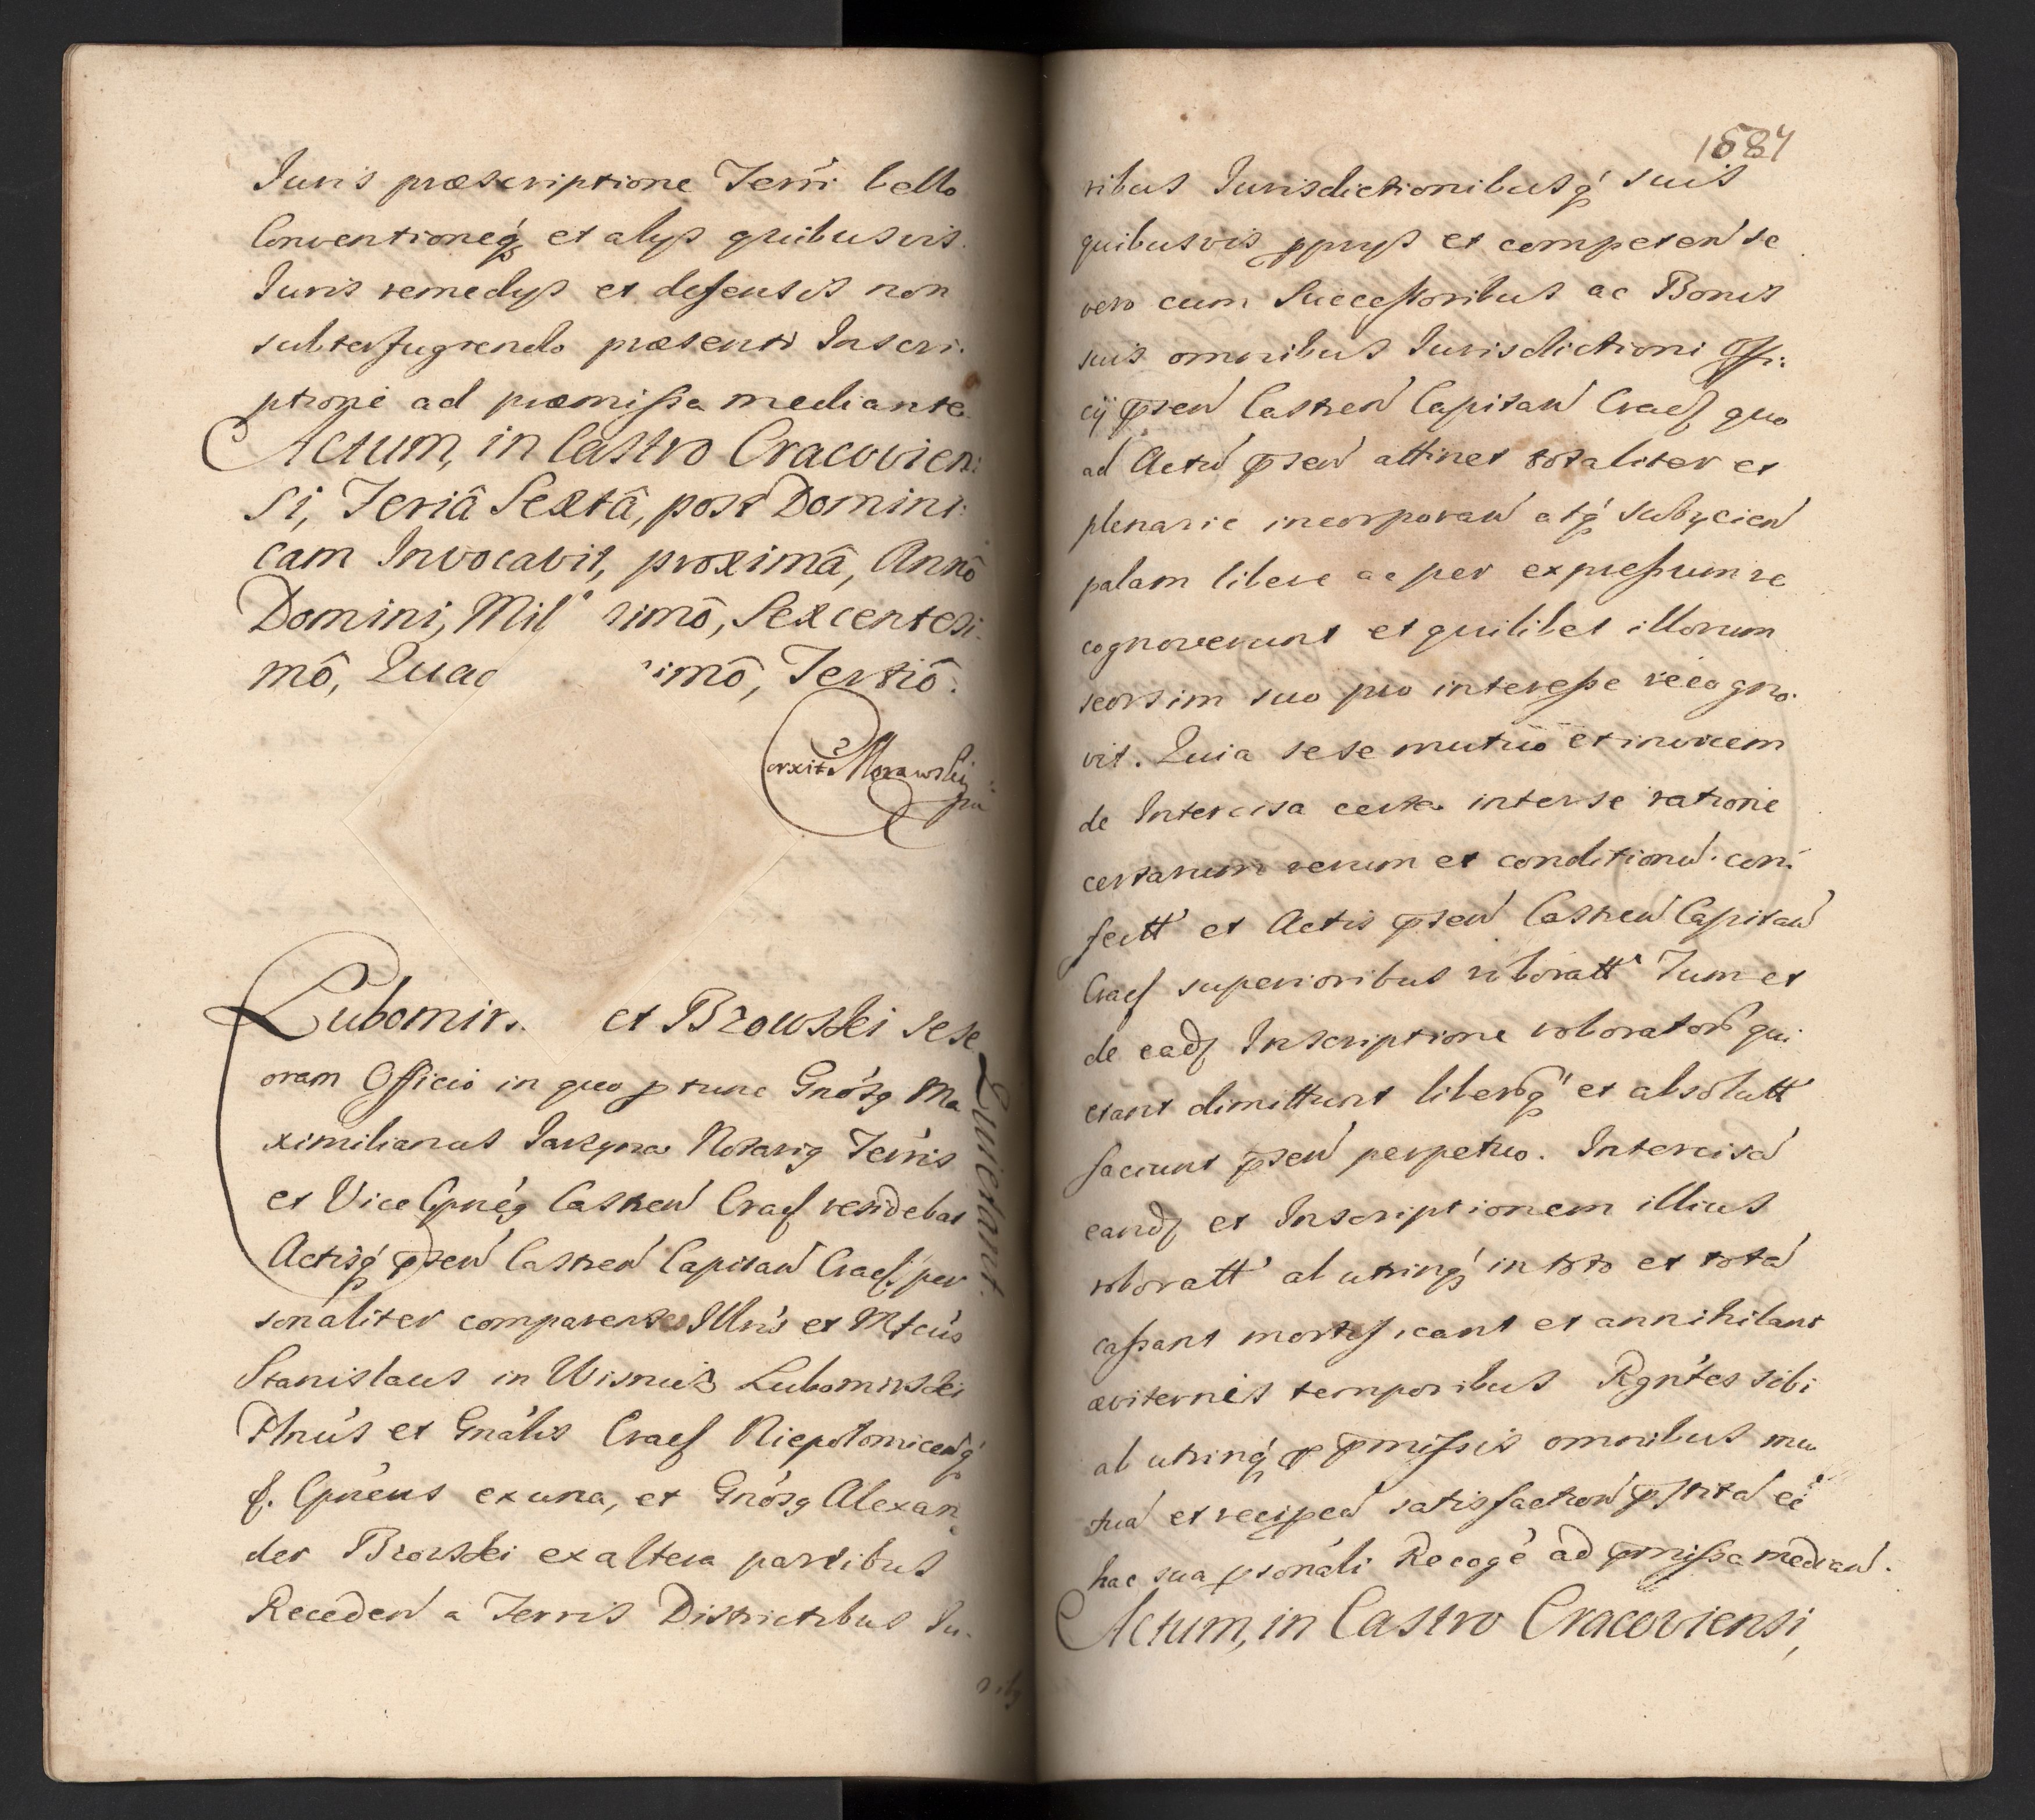 Juris præscriptione Terrī bello
Conventioneq́ꝫ et alijs quibusvis
Juris remedijs et defensis non
subterfugiendo præsenti Inscri:
ptione ad præmissa mediante
Actum, in Castro Cracovien:
si, Feriâ Sextâ, post Domini:
cam Invocavit, proximâ, Annô
Domini, Mil simô, Sexcentesi:
mô, Quad simô, Tertiô.
Morawski
Lubomirs et Brzowski sese
Quietant.
oram Officio in quo p tunc Gnósꝫ Ma
ximilianus Jarzyna Notariꝫ Terrís
et Vice Cpnéꝫ Castren̄ Cracꝭ residebat
Actisq́ꝫ p̄sen̄ Castren̄ Capitan̄ Cracꝭ per
sonaliter comparentes Illrís et Mfcús
Stanislaus in Wisnicz Lubomirski
Płnús et Gnális Cracꝭ Niepołomicen̄q́ꝫ
ꝭ. Cpnéus ex una, et Gnósꝫ Alexan
der Brzowski ex altera partibus
Receden̄ a Terris Districtibus Ju:
ribꝫ
1584
ribus Jurisdictionibusq́ꝫ suis
quibusvis pprijs et competen̄ se
vero cum Successoribus ac Bonis
suis omnibus Jurisdictioni Offi:
cij p̄sen̄ Castren̄ Capitan̄ Cracꝭ quo
ad Actū p̄sen̄ attinet totaliter et
plenarie incorporan̄ atq́ꝫ subijcien̄
palam libere ac per expressum re
cognoverunt et quilibet illorum
seorsim suo pro interesse recogno:
vit. Quia sese mutuo et invicem
de Intercisa certa inter se ratione
certarum rerum et conditionū con:
fectt̄ et Actis p̄sen̄ Castren̄ Capitan̄
Cracꝭ superioribus roboratt̄ Tum et
de eadꝫ Inscriptione roboratoŕ qui
etant dimittunt liberosq́ꝫ et absolutt̄
faciunt p̄sen̄ perpetuo. Intercisā
eandꝫ et Inscriptionem illius
roboratt̄ ab utrinq́ꝫ in toto et totā
cassant mortificant et annihilant
æviternis temporibus Rgńtes sibi
ab utrinq́ꝫ p p̄missis omnibus mu
tuā et recipcā satisfaction̄ p̄stitā eē
hac sua psonáli Recogē ad p̄missa median̄.
Actum, in Castro Cracoviensi,